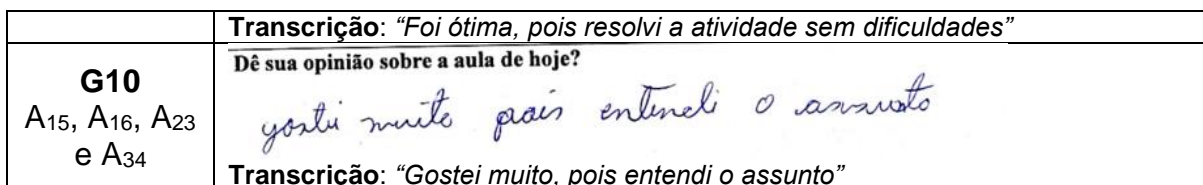 Transcrição: “Foi ótima, pois resolvi a atividade sem dificuldades”
G10
A15, A16, A23
e A34
Dê sua opinião sobre a aula de hoje?
gostei muito pois entendi o assunto
Transcrição: “Gostei muito, pois entendi o assunto”